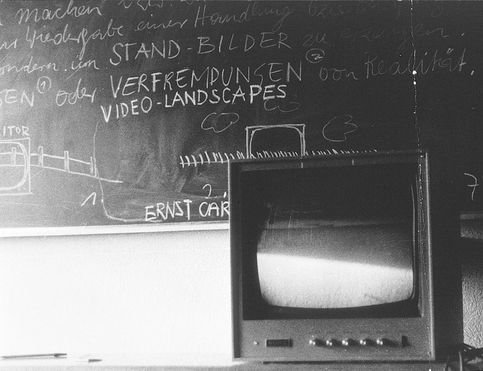 machen
Wiedergabe einer Handlung
um STAND-BILDER zu erzeugen.
EN ① oder VERFREMDUNGEN ② von Realität.
VIDEO-LANDSCAPES
ITOR
1
2.
7
ERNST CAR